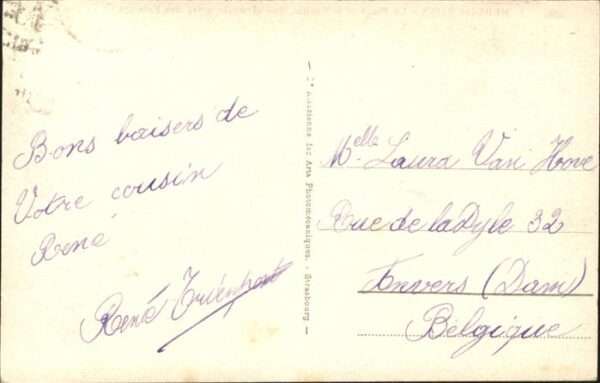 Bons baisers de
Votre cousin
René
René
— Cie Alsacienne des Arts Photomécaniques. - Strasbourg —
Melle Laura Van Hove
Rue de la Dyle 32
Anvers (Dam)
Belgique